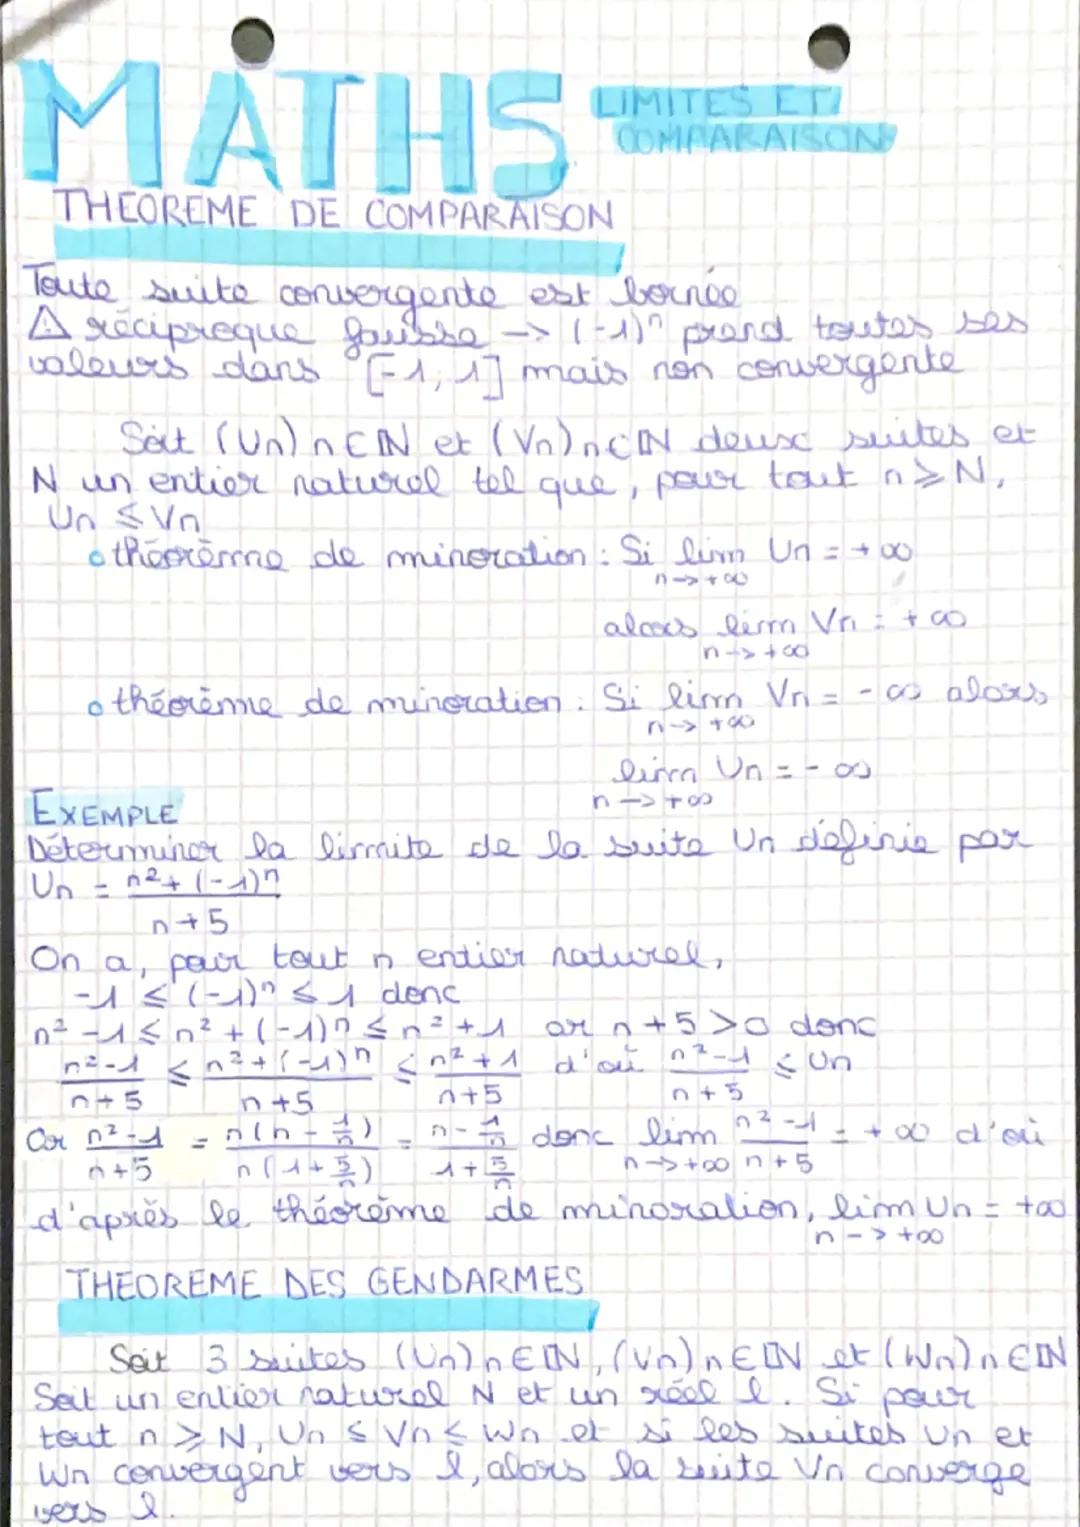 MATHS
LIMITES ET
COMPARAISON
THEOREME DE COMPARAISON
Toute suite convergente est bornée
⚠ réciproque fausse -> (-1)ⁿ prend toutes ses
valeurs dans [-1; 1] mais non convergente
Soit (Un) n∈ℕ et (Vn) n∈ℕ deux suites et
N un entier naturel tel que, pour tout n ≥ N,
Un ≤ Vn
o théorème de minoration : Si lim Un = +∞
n->+∞
alors lim Vn = +∞
n->+∞
o théorème de minoration : Si lim Vn = -∞ alors
n->+∞
lim Un = -∞
n->+∞
EXEMPLE
Déterminer la limite de la suite Un définie par
Un = n²+(-1)ⁿ
n+5
On a, pour tout n entier naturel,
-1 ≤ (-1)ⁿ ≤ 1 donc
n²-1 ≤ n²+(-1)ⁿ ≤ n²+1 or n+5>0 donc
n²-1 ≤ n²+(-1)ⁿ ≤ n²+1 d'où n²-1 ≤ Un
n+5 n+5 n+5 n+5
Cor n²-1 = n(n-1/n) = n-1/n donc lim n²-1 = +∞ d'où
n+5 n(1+5/n) 1+5/n n->+∞ n+5
d'après le théorème de minoration, lim Un = +∞
n->+∞
THEOREME DES GENDARMES
Soit 3 suites (Un) n∈ℕ, (Vn) n∈ℕ et (Wn) n∈ℕ
Soit un entier naturel N et un réel l. Si pour
tout n ≥ N, Un ≤ Vn ≤ Wn et si les suites Un et
Wn convergent vers l, alors la suite Vn converge
vers l.